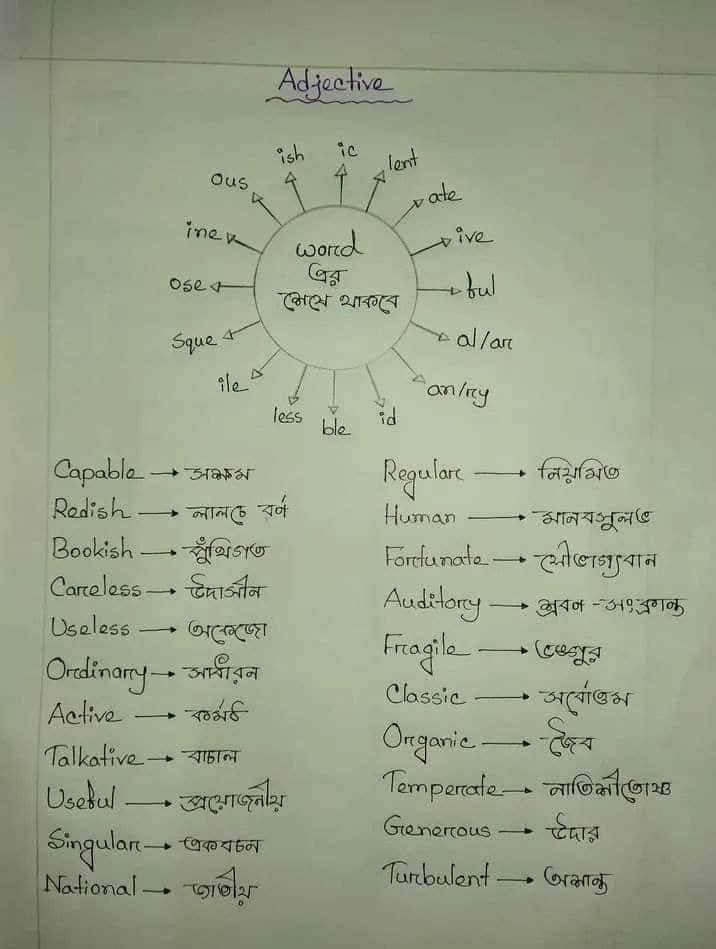 Adjective
ish
ic
lent
ous
ate
ine
ive
word
এর
শেষে থাকবে
ose
ful
sque
al/ar
ile
an/ry
less
ble
id
Capable → সক্ষম
Redish → লালচে বর্ণ
Bookish → পুঁথিগত
Careless → উদাসীন
Useless → অকেজো
Ordinary → সাধারন
Active → কর্মঠ
Talkative → বাচাল
Useful → প্রয়োজনীয়
Singular → একবচন
National → জাতীয়
Regular → নিয়মিত
Human → মানবসুলভ
Fortunate → সৌভাগ্যবান
Auditory → শ্রবন-সংক্রান্ত
Fragile → ভঙ্গুর
Classic → সর্বোত্তম
Organic → জৈব
Temperate → নাতিশীতোষ্ণ
Generous → উদার
Turbulent → অশান্ত